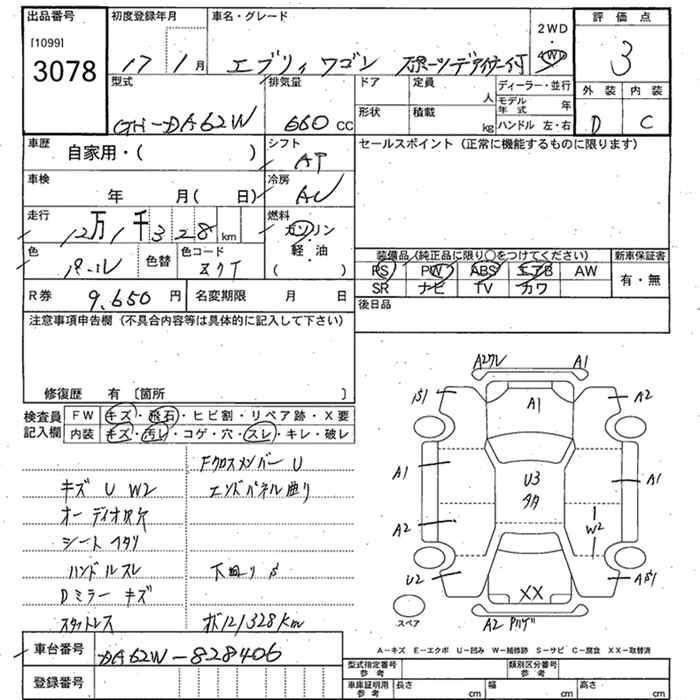 出品番号
[1099]
3078
初度登録年月
17 1月
車名・グレード
エブリィ ワゴン
2WD
・
4WD
評価点
3
外装 内装
D C
型式
GH-DA62W
排気量
660 CC
ドア
定員
人
形状
積載
kg
ディーラー・並行
モデル年式 年
ハンドル 左・右
車歴
自家用・( )
シフト
AT
セールスポイント (正常に機能するものに限ります)
車検
年 月(日)
冷房
AC
走行
12万1千328 km
燃料
ガソリン
軽・油
( )
色
パール
色替
色コード
装備品(純正品に限り○をつけてください)
PS PW ABS エアB AW
SR ナビ TV カワ
新車保証書
有・無
R券
9,650円
名変期限 月 日
後日品
注意事項申告欄 (不具合内容等は具体的に記入して下さい)
修復歴 有〔箇所 〕
検査員記入欄
FW キズ・飛石・ヒビ割・リペア跡・X要
内装 キズ・汚レ・コゲ・穴・スレ・キレ・破レ
Fクロスメンバー U
キズ U W2
エンドパネル曲り
オーディオ
シート ヘタリ
ハンドルスレ
下回り S
Dミラー キズ
スタットレス
121,328km
車台番号
DA62W-828406
登録番号
A1
A1
S1
A2
A1
U3
A1
A2
W2
U2
XX
A2
スペア
A-キズ E-エクボ U-凹み W-補修跡 S-サビ C-腐食 XX-取替済
型式指定番号 参考
類別区分番号 参考
車庫証明用 参考
長さ cm
幅 cm
高さ cm